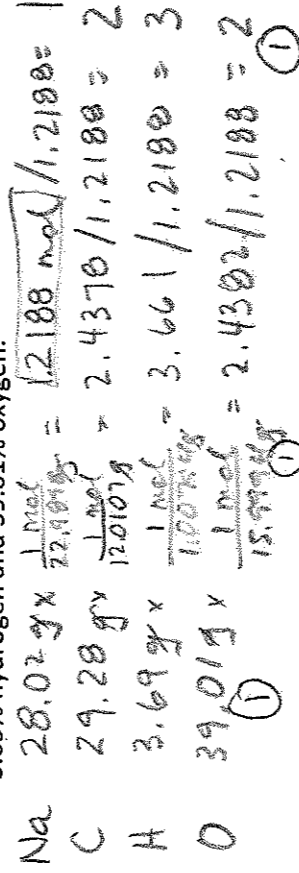 3.69% hydrogen and 39.01% oxygen.
Na 28.02 g x 1 mol / 22.989g = 1.2188 mol /1.2188= 1
C 29.28 gx 1 mol / 12.0107g = 2.4378/1.2188 = 2
H 3.69 g x 1 mol = 3.661/1.2188 = 3
O 39.01g x 1 mol = 2.4382/1.2188 = 2
1 1 1